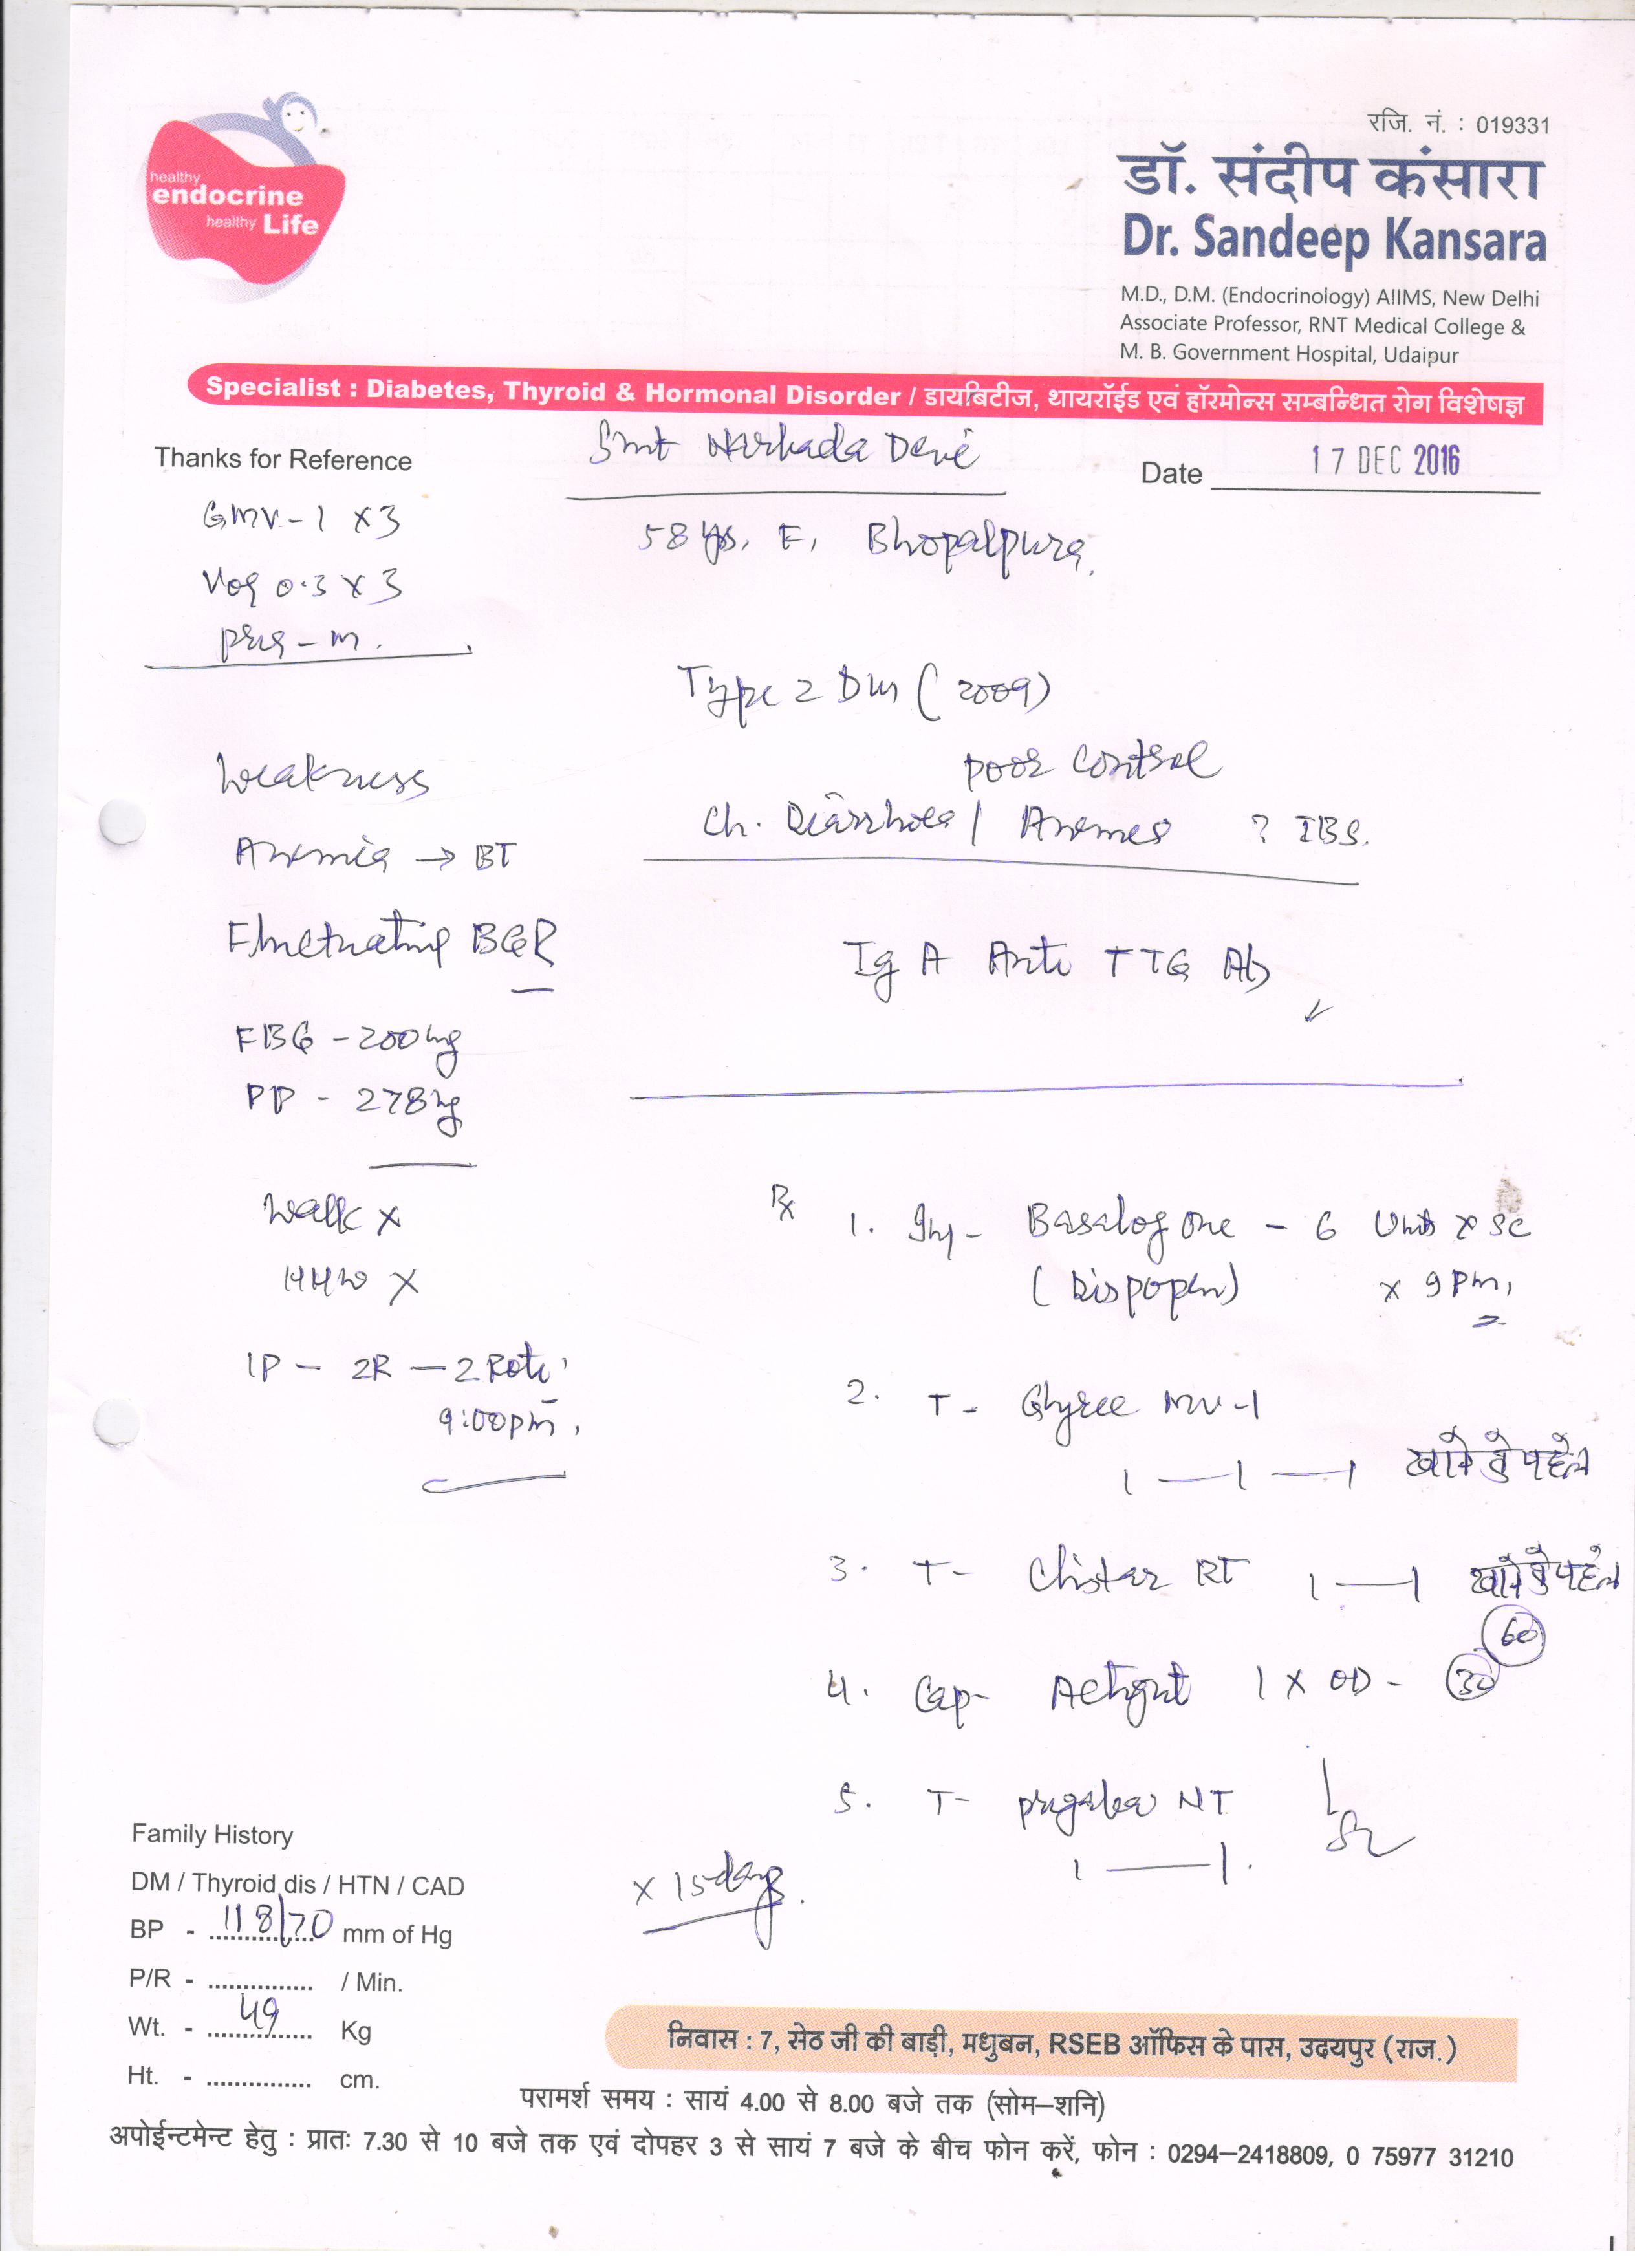 healthy
endocrine
healthy Life
रजि. नं. : 019331
डॉ. संदीप कंसारा
Dr. Sandeep Kansara
M.D., D.M. (Endocrinology) AIIMS, New Delhi
Associate Professor, RNT Medical College &
M. B. Government Hospital, Udaipur
Specialist : Diabetes, Thyroid & Hormonal Disorder / डायबिटीज, थायरॉईड एवं हॉरमोन्स सम्बन्धित रोग विशेषज्ञ
Thanks for Reference
Smt Narbada Devi
Date 17 DEC 2016
58 yrs, F, Bhopalpura.
GMV-1 x3
Vog 0.3 x 3
Type 2 DM (2009)
poor control
Ch. Diarrhoea / Anemia ? IBS.
Weakness
Anemia → BT
Fluctuating BGR
FBG - 200 mg
PP - 278 mg
Walk x
HHW x
1P - 2R - 2 Roti
9:00pm.
Ig A Anti TTG Ab ✓
Rx
1. Inj- Basalog One - 6 Units x SC
(Dispopen) x 9 pm,
2. T- Glyree MV-1
1 — 1 — 1 खाने से पहले
3. T- RT 1 — 1 खाने से पहले
60
4. Cap- Actigut 1 x OD - 30
5. T- pregaba NT
1 — 1.
x 15 days.
Family History
DM / Thyroid dis / HTN / CAD
BP - 118/70 mm of Hg
P/R - / Min.
Wt. - 49 Kg
Ht. - cm.
निवास : 7, सेठ जी की बाड़ी, मधुबन, RSEB ऑफिस के पास, उदयपुर (राज.)
परामर्श समय : सायं 4.00 से 8.00 बजे तक (सोम–शनि)
अपोईन्टमेन्ट हेतु : प्रातः 7.30 से 10 बजे तक एवं दोपहर 3 से सायं 7 बजे के बीच फोन करें, फोन : 0294–2418809, 0 75977 31210